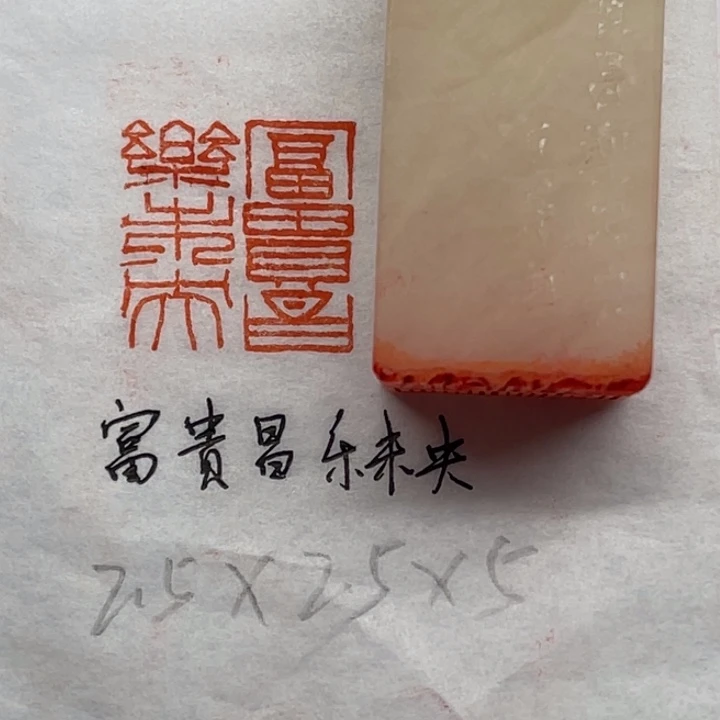 富貴昌
樂未央
富貴昌乐未央
2.5×2.5×5